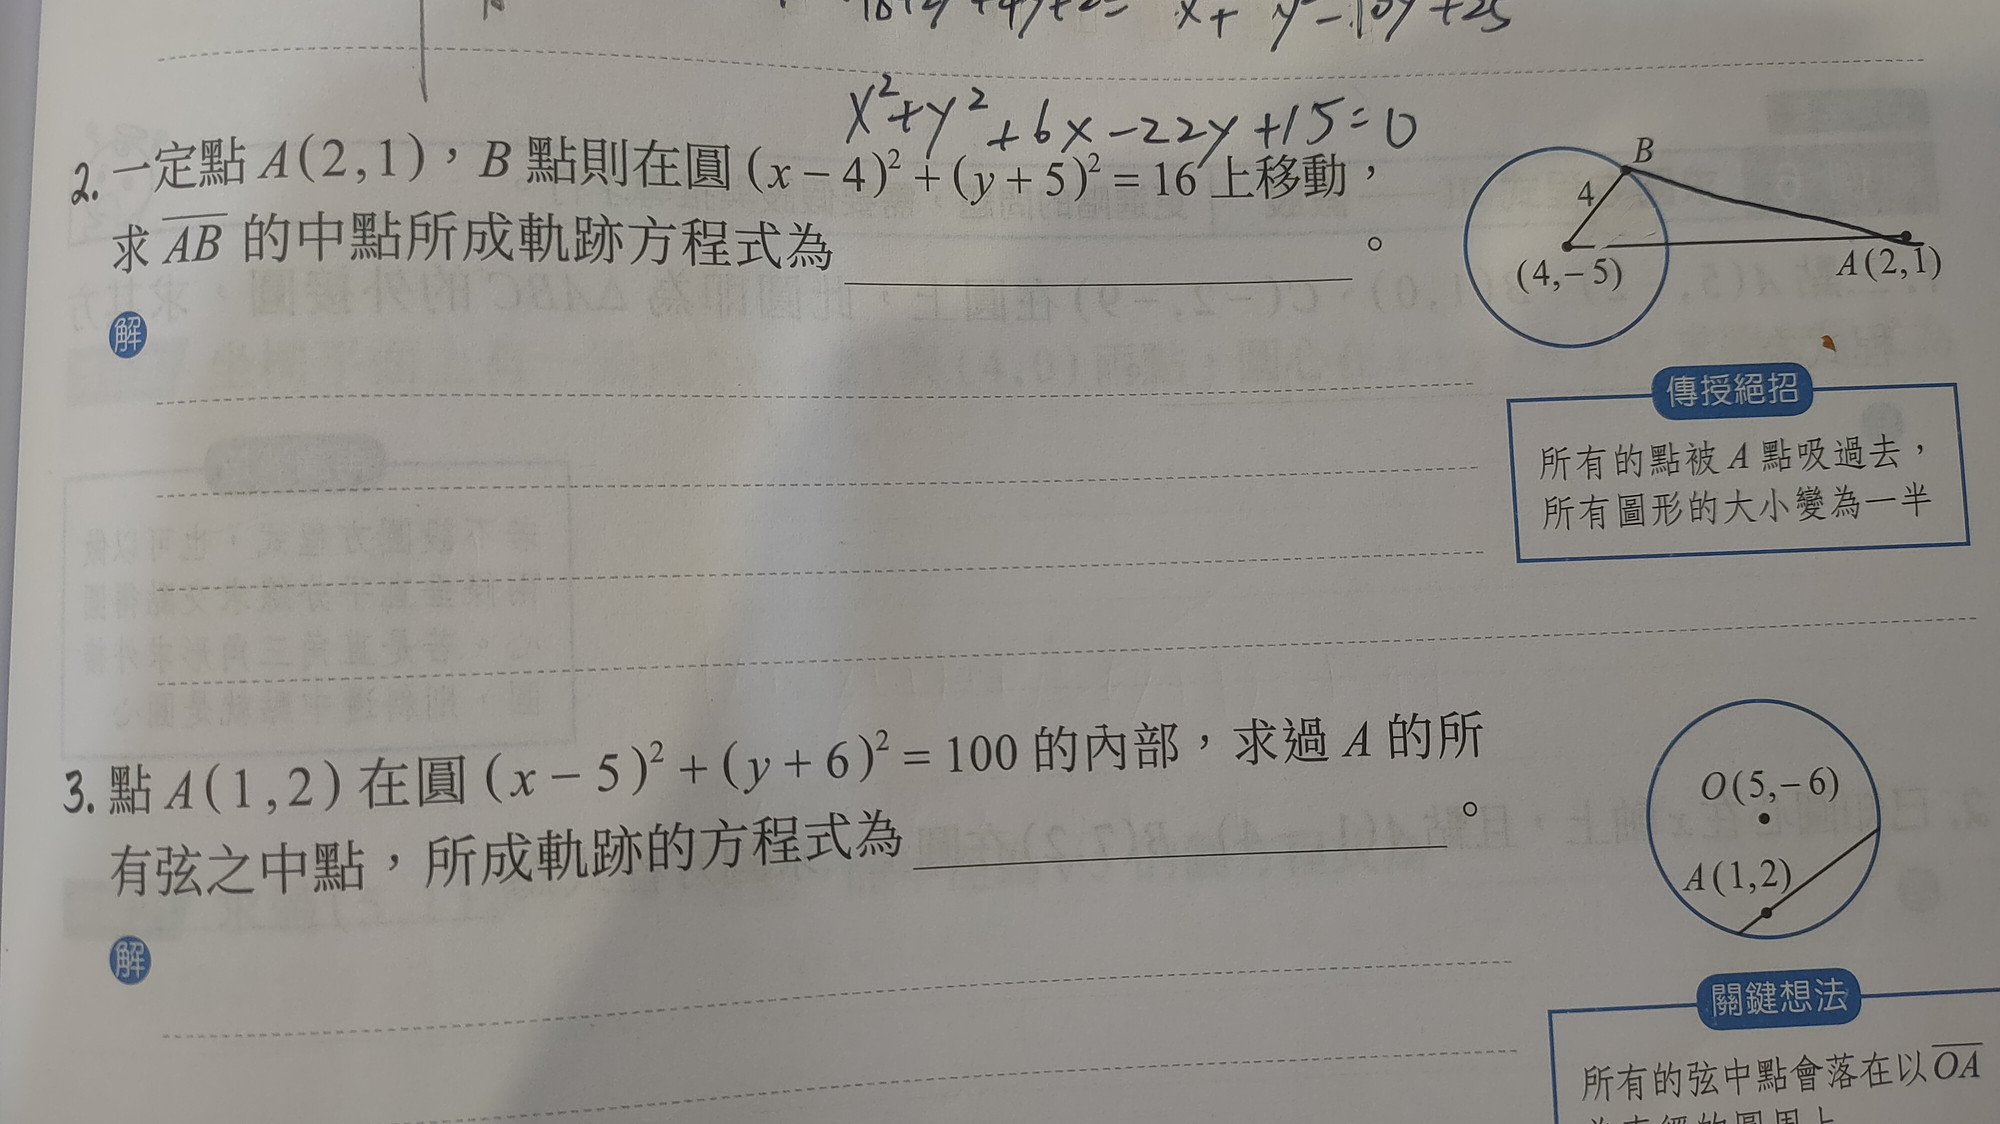 x²+y²+6x-22y+15=0
2. 一定點 A(2,1)，B 點則在圓 (x-4)²+(y+5)²=16 上移動，
求 \overline{AB} 的中點所成軌跡方程式為＿＿＿＿。
B
4
(4,-5)
A(2,1)
解
傳授絕招
所有的點被 A 點吸過去，
所有圖形的大小變為一半
3. 點 A(1,2) 在圓 (x-5)²+(y+6)²=100 的內部，求過 A 的所
有弦之中點，所成軌跡的方程式為＿＿＿＿。
O(5,-6)
A(1,2)
解
關鍵想法
所有的弦中點會落在以 \overline{OA}
為直徑的圓周上